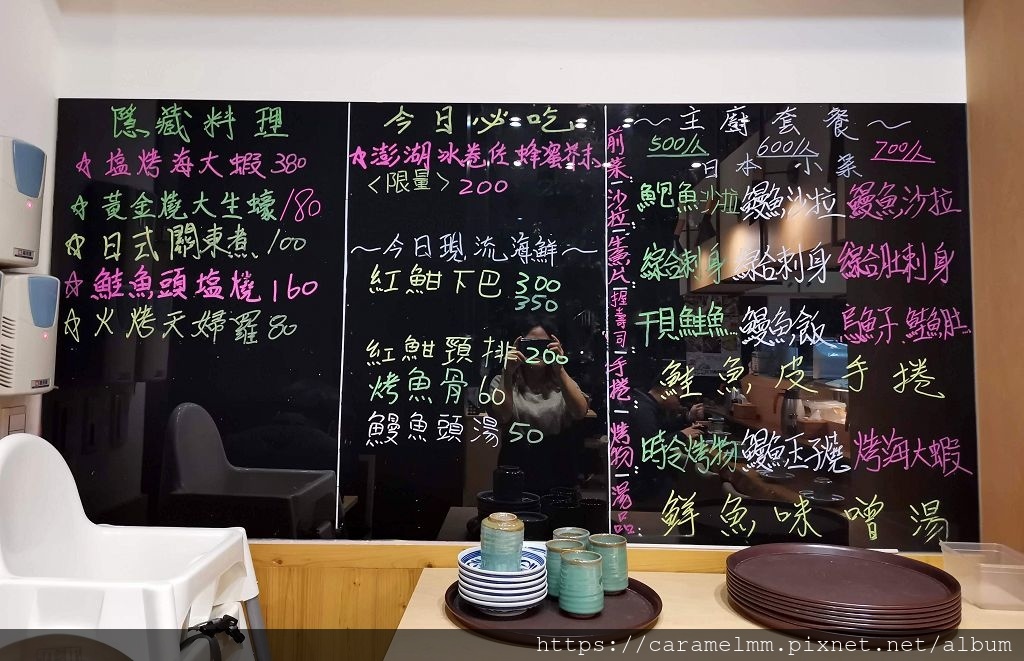 隱藏料理
☆塩烤海大蝦380
☆黃金燒大生蠔180
☆日式關東煮100
☆鮭魚頭塩燒160
☆火烤天婦羅80
今日必吃
☆澎湖冰卷佐蜂蜜芥末
<限量>200
～今日現流海鮮～
紅魽下巴 300
350
紅魽頸排200
烤魚骨60
鰻魚頭湯50
～主廚套餐～
500/人 600/人 700/人
前菜 日本小菜
沙拉 鮑魚沙拉 鰻魚沙拉 鰻魚沙拉
生魚片 綜合刺身 綜合刺身 綜合肚刺身
握壽司 干貝鮭魚 鰻魚飯 烏魚子鮭魚肚
手捲 鮭魚皮手捲
烤物 時令烤物 鰻魚玉子燒 烤海大蝦
湯品 鮮魚味噌湯
https://caramelmm.pixnet.net/album